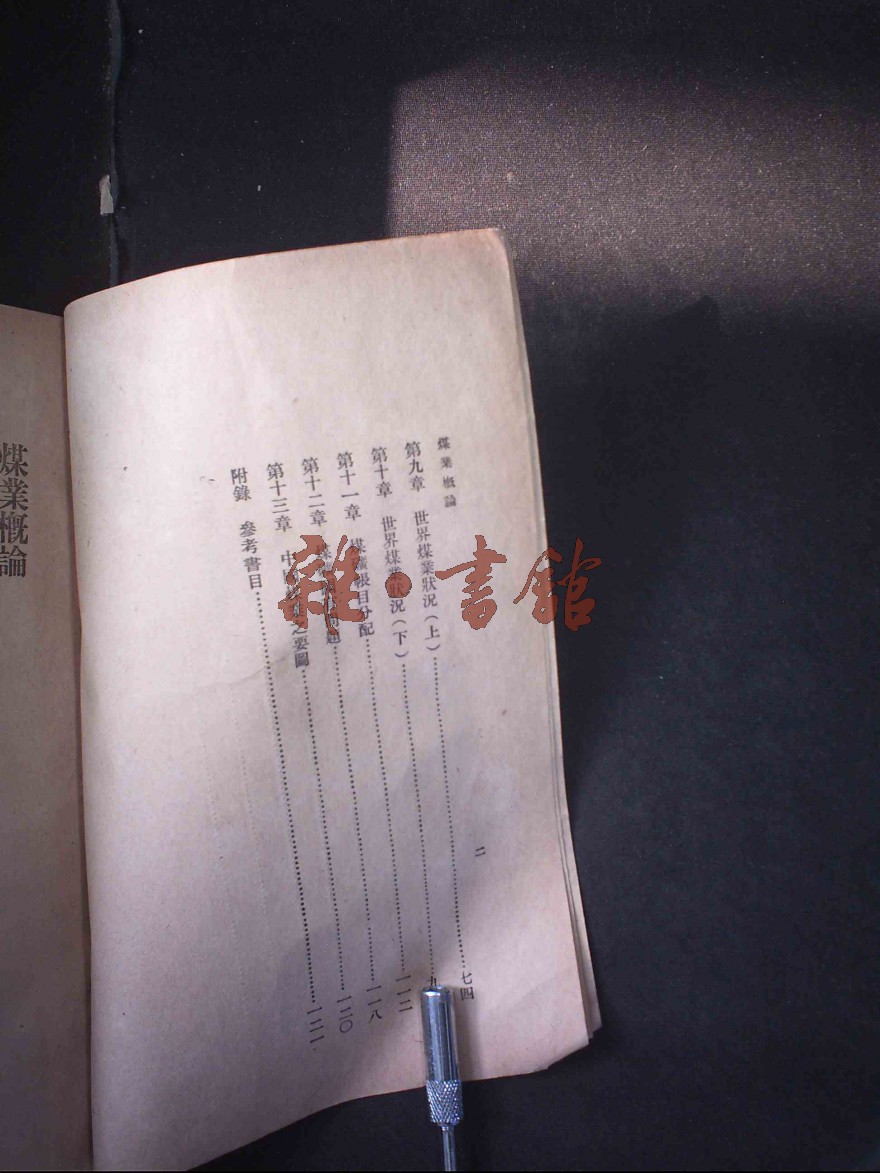 煤業概論 二
第九章 世界煤業狀況（上）……七四
第十章 世界煤業狀況（下）……九
第十一章 煤礦帳目分配……一一二
第十二章 題……一一八
第十三章 中國之要圖……一二〇
附錄 參考書目……一二一
煤業概論
雜·書館